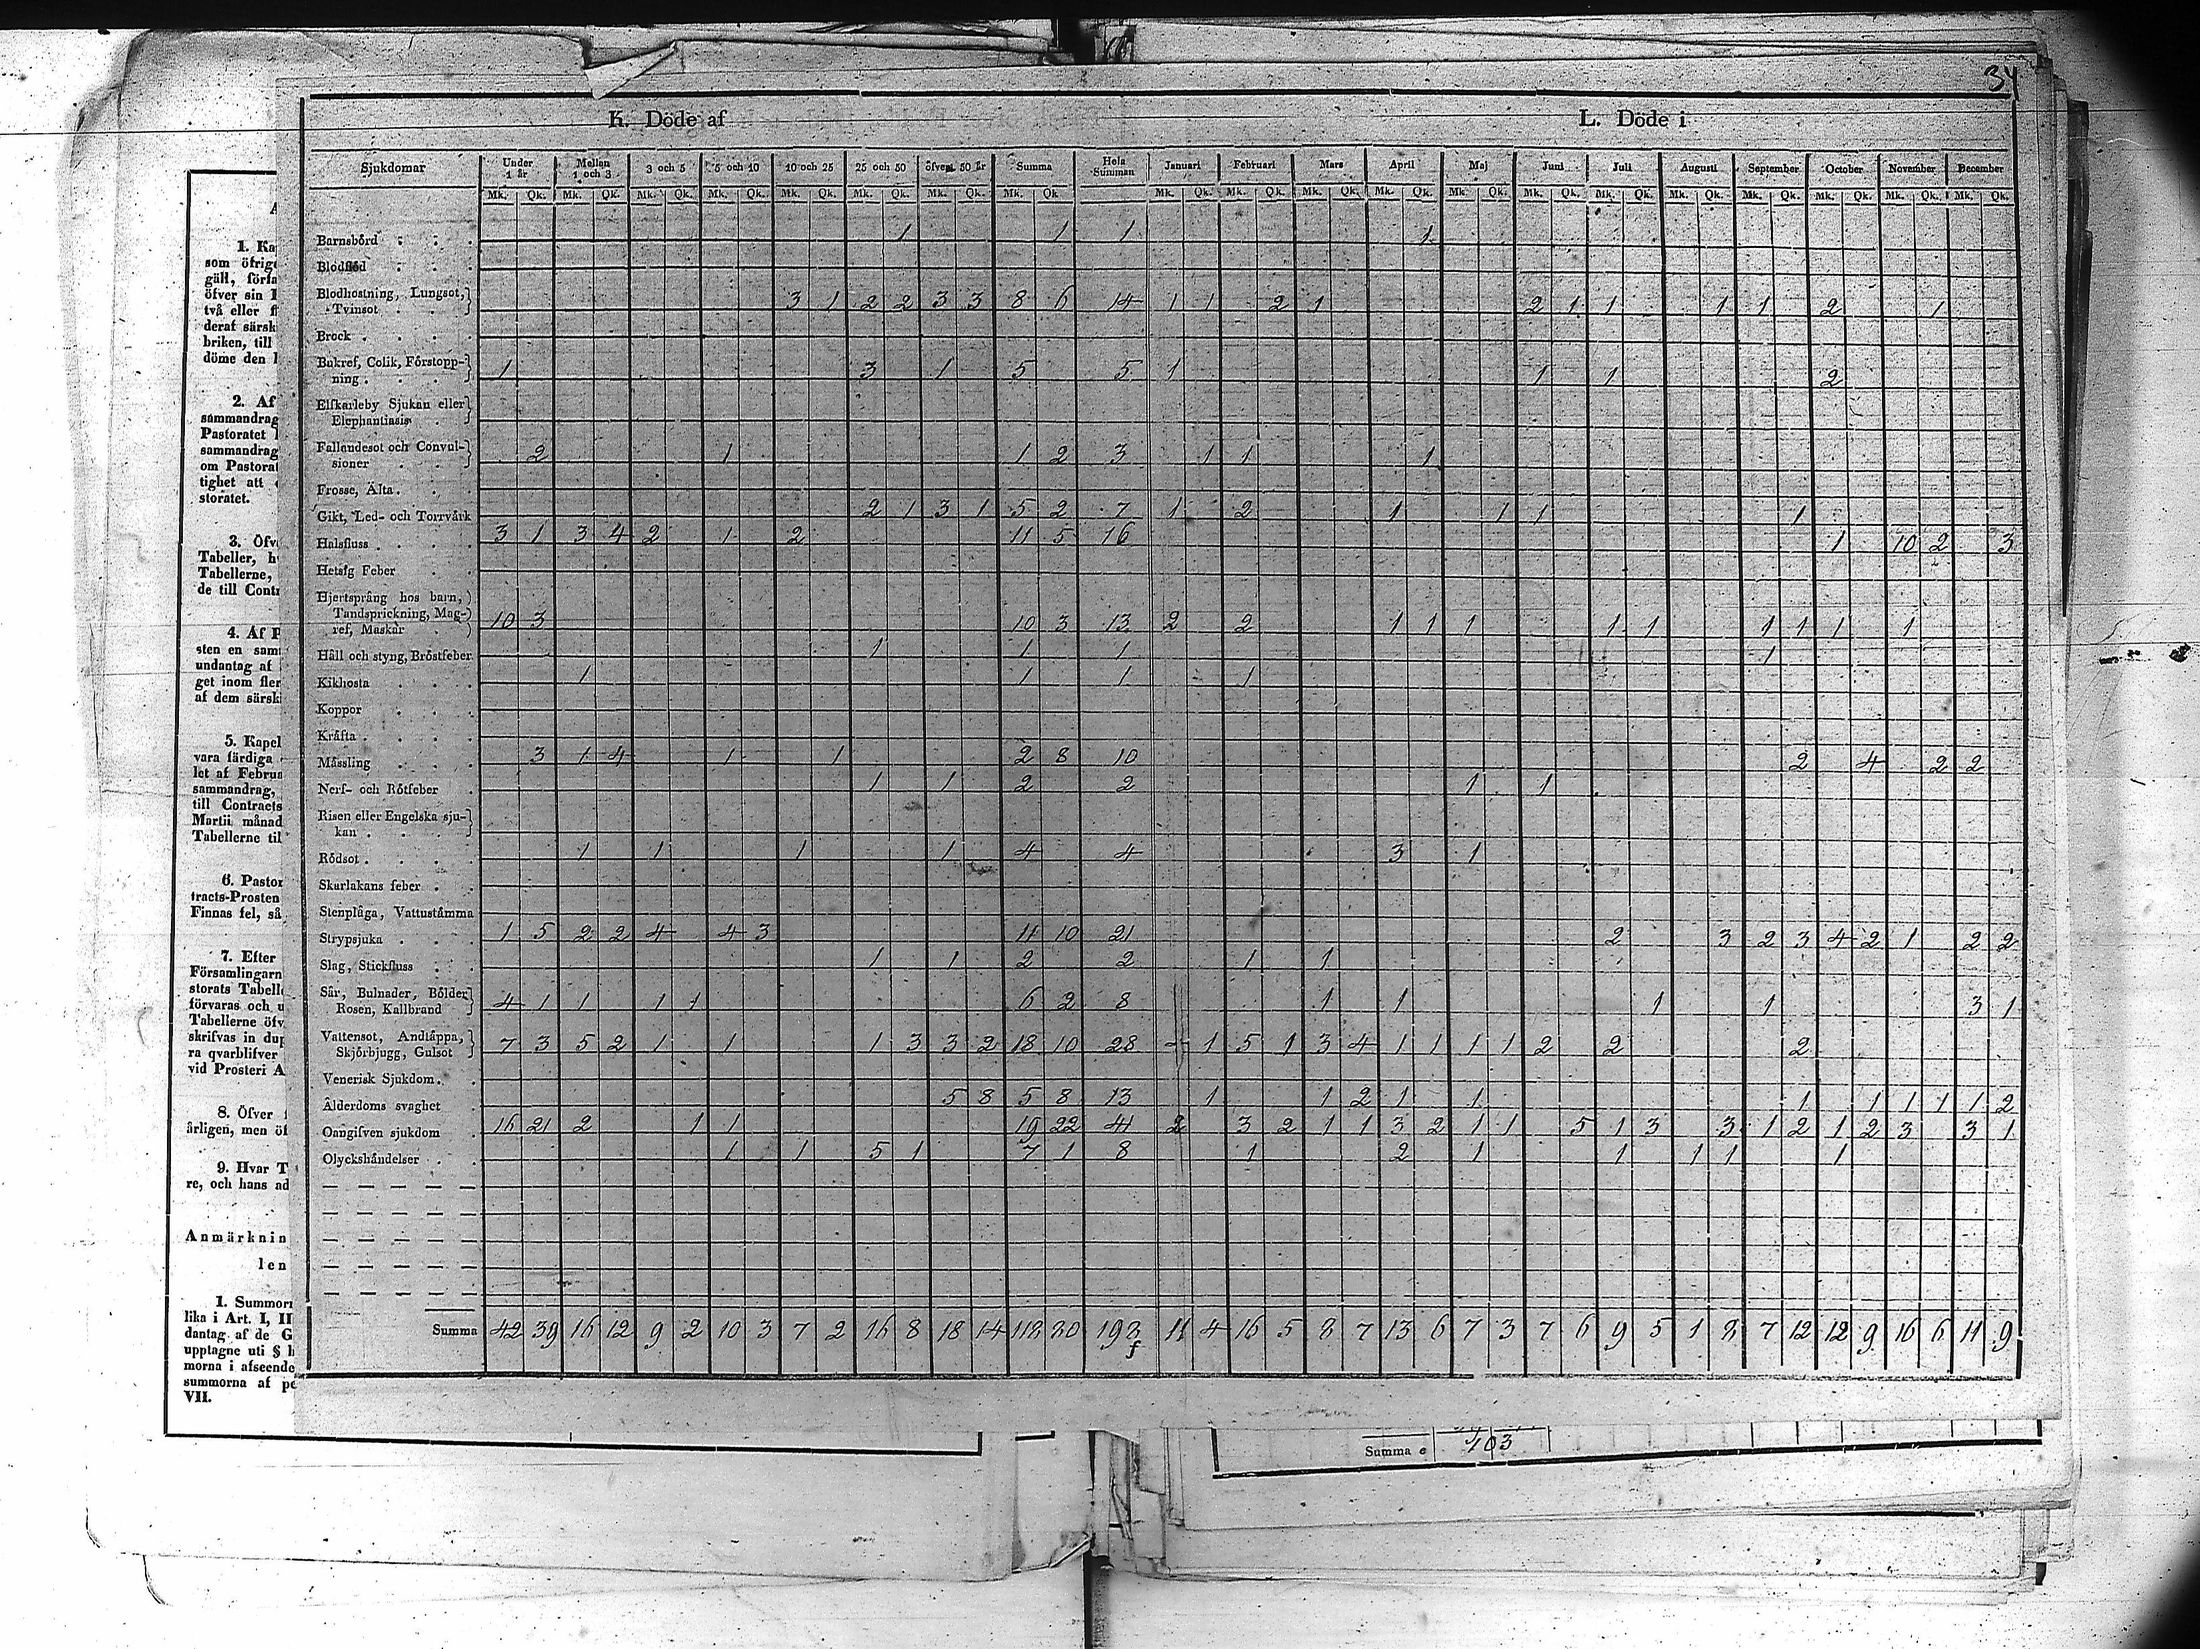 34
K. Döde af
L. Döde i
Sjukdomar | Under 1 år | Mellan 1 och 3 | 3 och 5 | 5 och 10 | 10 och 25 | 25 och 50 | öfver 50 år | Summa | Hela Summan | Januari | Februari | Mars | April | Maj | Juni | Juli | Augusti | September | October | November | December
Mk. Qk. Mk. Qk. Mk. Qk. Mk. Qk. Mk. Qk. Mk. Qk. Mk. Qk. Mk. Qk. Mk. Qk. Mk. Qk. Mk. Qk. Mk. Qk. Mk. Qk. Mk. Qk. Mk. Qk. Mk. Qk. Mk. Qk. Mk. Qk. Mk. Qk. Mk. Qk.
Barnsbörd 1 1 1 1
Blodflöd
Blodhostning, Lungsot,
Tvinsot 3 1 2 2 3 3 8 6 14 1 1 2 1 2 1 1 1 1 2 1
Brock
Bukref, Colik, Förstopp-
ning 1 3 1 5 5 1 1 1 2
Elfkarleby Sjukan eller
Elephantiasis
Fallandesot och Convul-
sioner 2 1 1 2 3 1 1 1
Frosse, Älta
Gikt, Led- och Torrvärk 2 1 3 1 5 2 7 1 2 1 1 1 1
Halsfluss 3 1 3 4 2 1 2 11 5 16 1 10 2 3
Hetsig Feber
Hjertsprång hos barn,
Tandsprickning, Mag-
ref, Maskar 10 3 10 3 13 2 2 1 1 1 1 1 1 1 1 1
Håll och styng, Bröstfeber 1 1 1 1
Kikhosta 1 1 1 1
Koppor
Kräfta
Mässling 3 1 4 1 1 2 8 10 2 4 2 2
Nerf- och Rötfeber 1 1 2 2 1 1
Risen eller Engelska sju-
kan
Rödsot 1 1 1 1 4 4 3 1
Skarlakans feber
Stenplåga, Vattustämma
Strypsjuka 1 5 2 2 4 4 3 11 10 21 2 3 2 3 4 2 1 2 2
Slag, Stickfluss 1 1 2 2 1 1
Sår, Bulnader, Bölder
Rosen, Kallbrand 4 1 1 1 1 6 2 8 1 1 1 1 3 1
Vattensot, Andtäppa,
Skjörbjugg, Gulsot 7 3 5 2 1 1 1 3 3 2 18 10 28 1 5 1 3 4 1 1 1 1 2 2 2
Venerisk Sjukdom
Ålderdoms svaghet 5 8 5 8 13 1 1 2 1 1 1 1 1 1 1 2
Oangifven sjukdom 16 21 2 1 1 19 22 41 2 3 2 1 1 3 2 1 1 5 1 3 3 1 2 1 2 3 3 1
Olyckshändelser 1 1 5 1 7 1 8 1 2 1 1 1 1 1
Summa 42 39 16 12 9 2 10 3 7 2 16 8 18 14 118 80 198 11 4 16 5 8 7 13 6 7 3 7 6 9 5 1 8 7 12 12 9 16 6 11 9
f
1. Ka
som öfrige
gäll, förfa
öfver sin
två eller
deraf särsk
briken, till
döme den
2. Af
sammandrag
Pastoratet
sammandrag
om Pastorat
tighet att
storatet.
3. Öfv
Tabeller, h
Tabellerne,
de till Contr
4. Af P
sten en sam
undantag af
get inom fler
af dem särsk
5. Kapel
vara färdiga
let af Februa
sammandrag,
till Contracts
Martii månad
Tabellerne til
6. Pastor
tracts-Prosten
Finnas fel, så
7. Efter
Församlingarn
storats Tabell
förvaras och u
Tabellerne öfv
skrifvas in dup
ra qvarblifver
vid Prosteri A
8. Öfver
årligen, men öf
9. Hvar T
re, och hans ad
Anmärknin
len
1. Summorn
lika i Art. I, II
dantag af de G
upptagne uti § h
morna i afseende
summorna af pe
VII.
Summa e 103